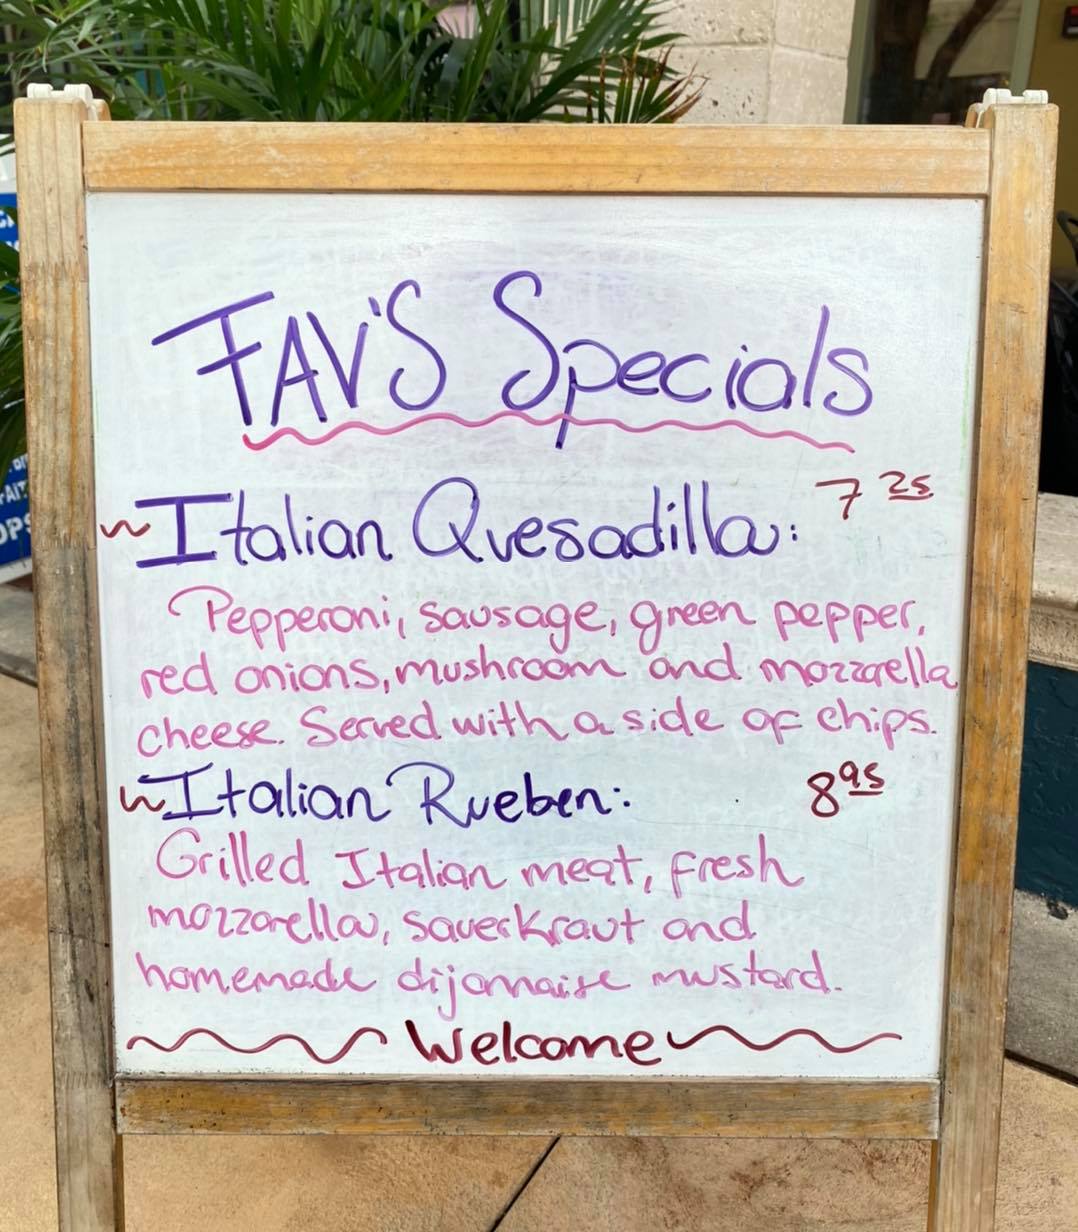 FAV'S Specials
Italian Quesadilla: 7 25
Pepperoni, sausage, green pepper,
red onions, mushroom and mozzarella
cheese. Served with a side of chips.
Italian Rueben: 8 95
Grilled Italian meat, fresh
mozzarella, sauerkraut and
homemade dijonnaise mustard.
Welcome